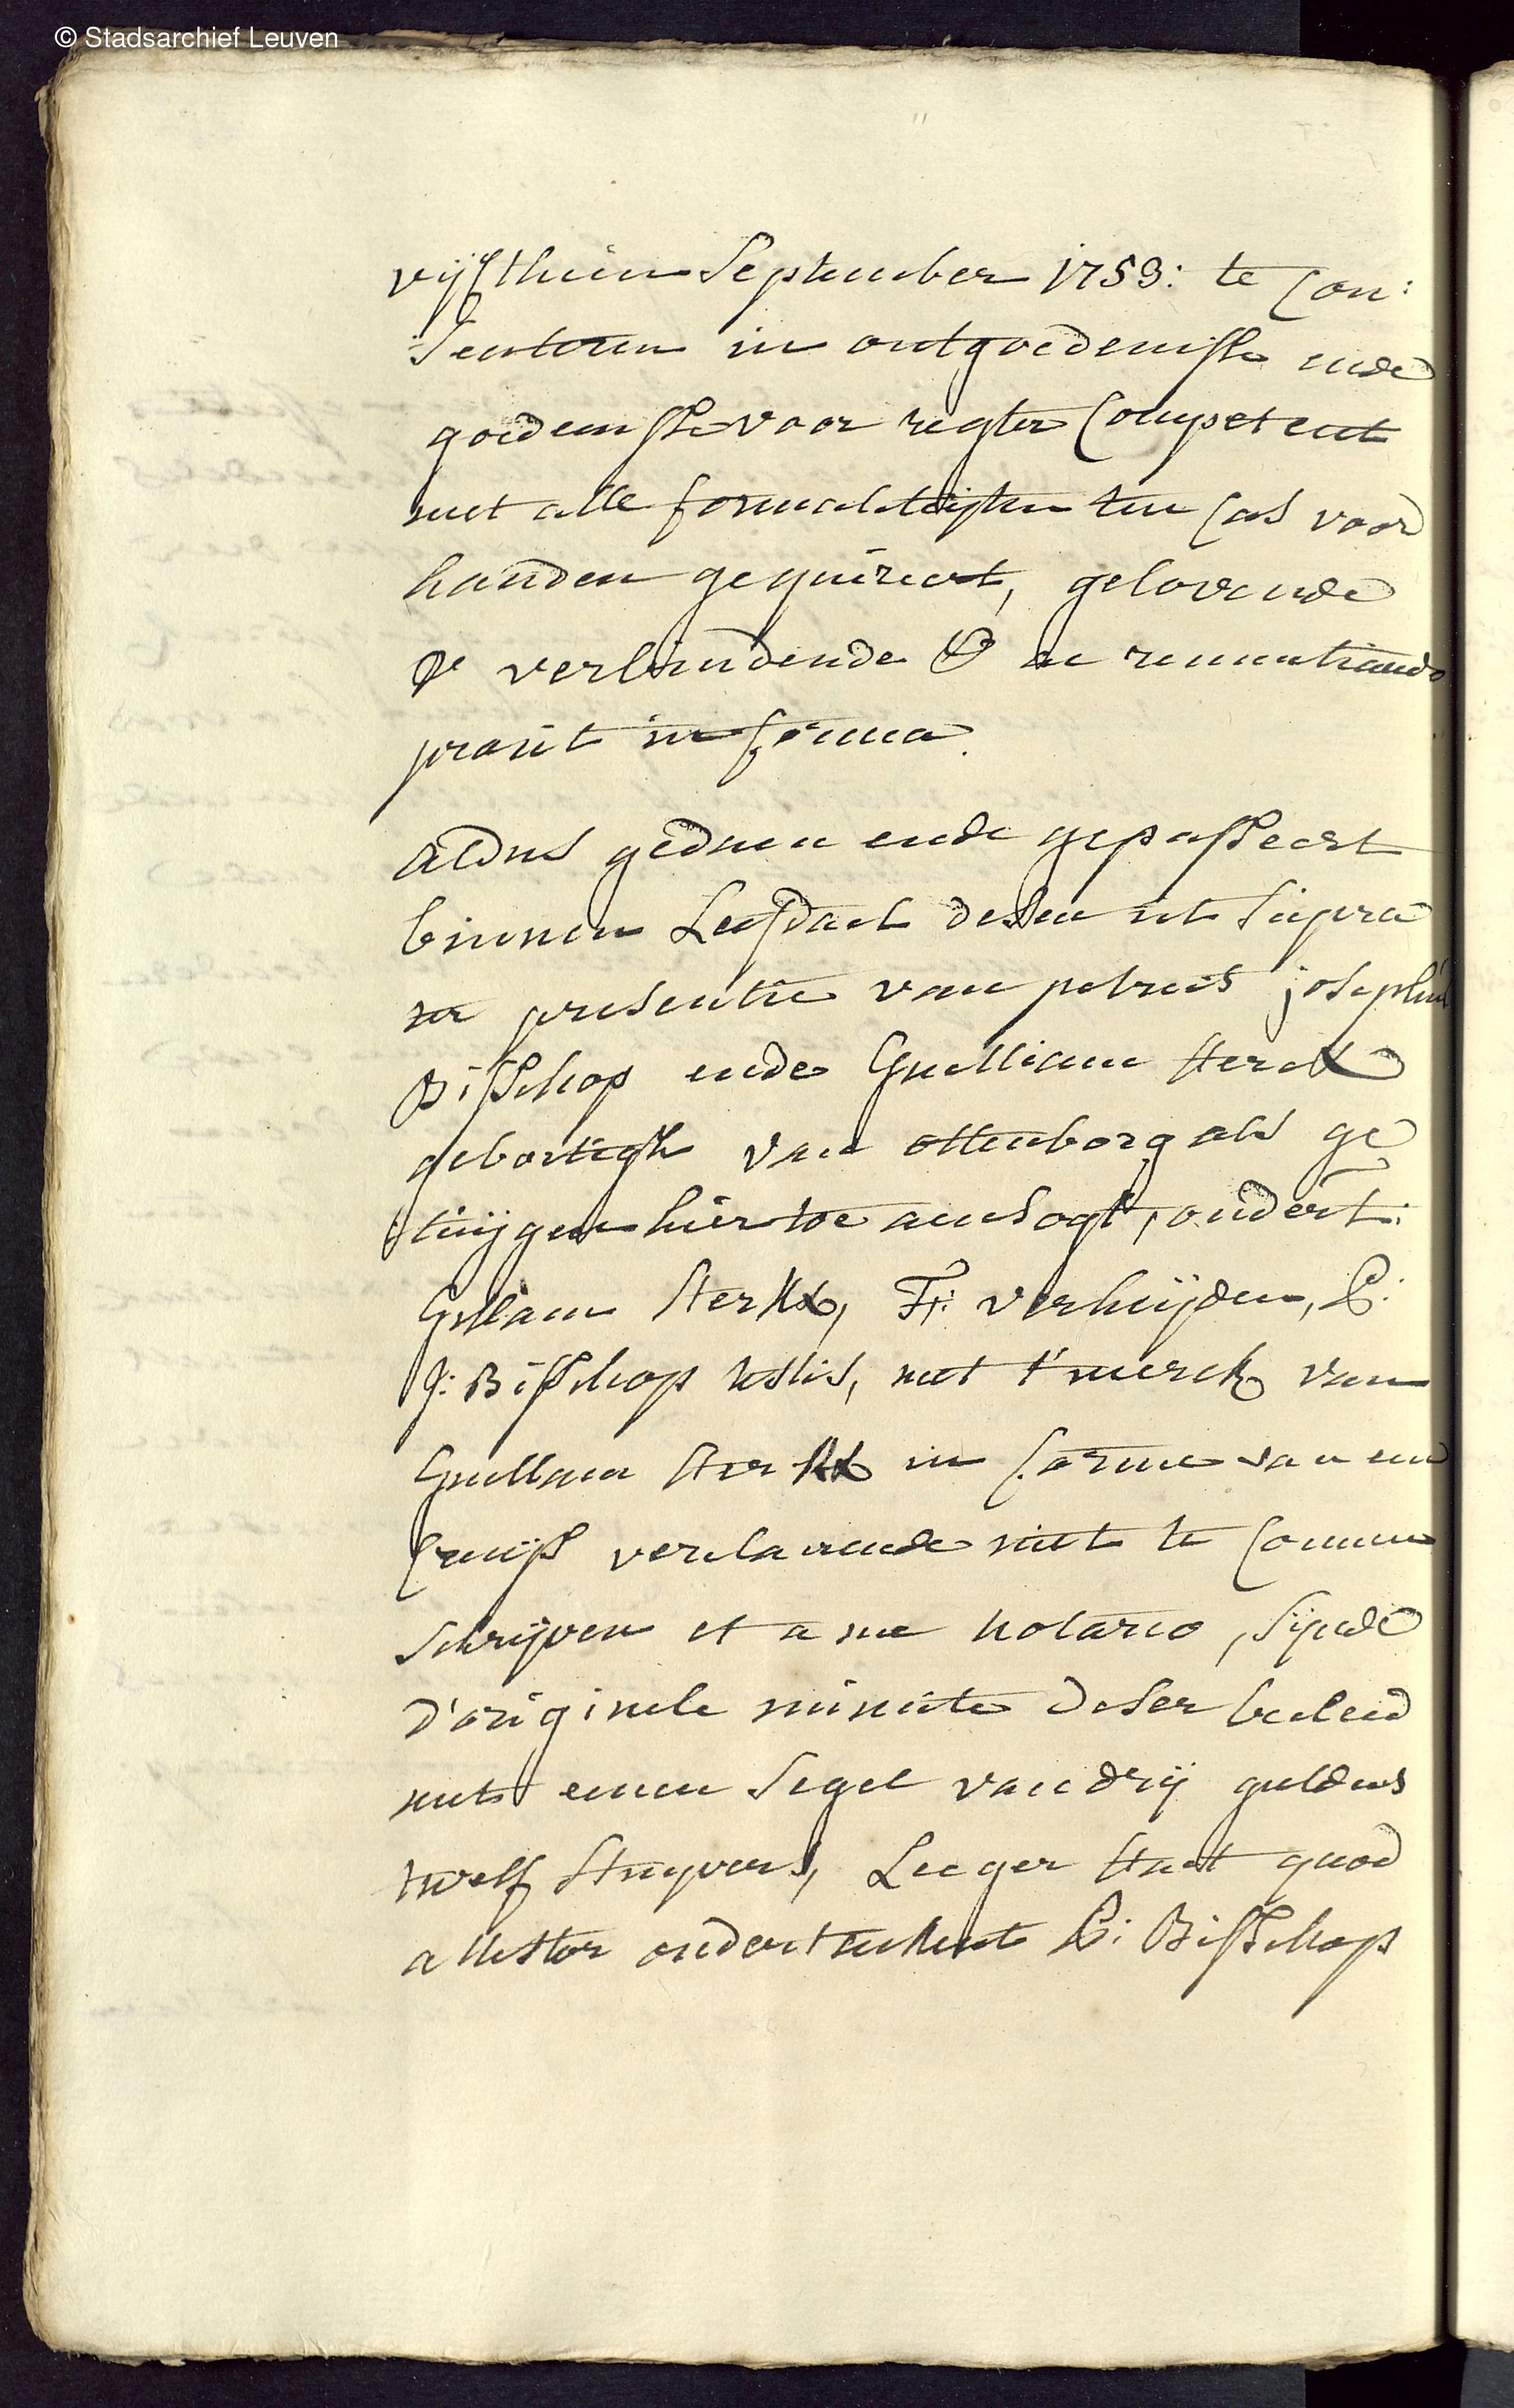 © Stadsarchief Leuven
vijfthien September 1759: te Con:
senteren in ontgoedenisse ende
goedenisse voor regter Competent
met alle formaliteijten ten cas voor
handen gequireert, gelovende
verbindende & ac renuntiando
prout in forma
aldus gedaen ende gepasseert
binnen Leefdael desen ut supra
in presentie van petrus josephus
Bisschop ende Guilliam Sterck
gebortigh van ottenborg als ge
tuijgen hier toe aensogt, ondert:
Gilliam Sterkx, Fr: verheijden, P:
J: Bisschop testis, met t'merck van
Guilliam Sterkx in forme van een
Cruijs verclarende niet te connen
schrijven et a me notario, sijnde
d'originele minute deser becleed
met eenen segel van drij guldens
twelf stuyvers, Leeger staet quod
attestor ondertekent P: Bisschop